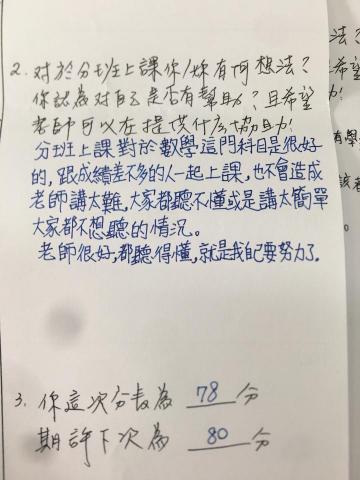 2. 對於分班上課你/妳有何想法?
你認為對自己是否有幫助?且希望
老師可以在提供什麼協助!
分班上課對於數學這門科目是很好
的,跟成績差不多的人一起上課,也不會造成
老師講太難,大家都聽不懂或是講太簡單
大家都不想聽的情況。
老師很好,都聽得懂,就是我自己要努力了.
3. 你這次分數為 78 分
期許下次為 80 分
法?
希望
有學